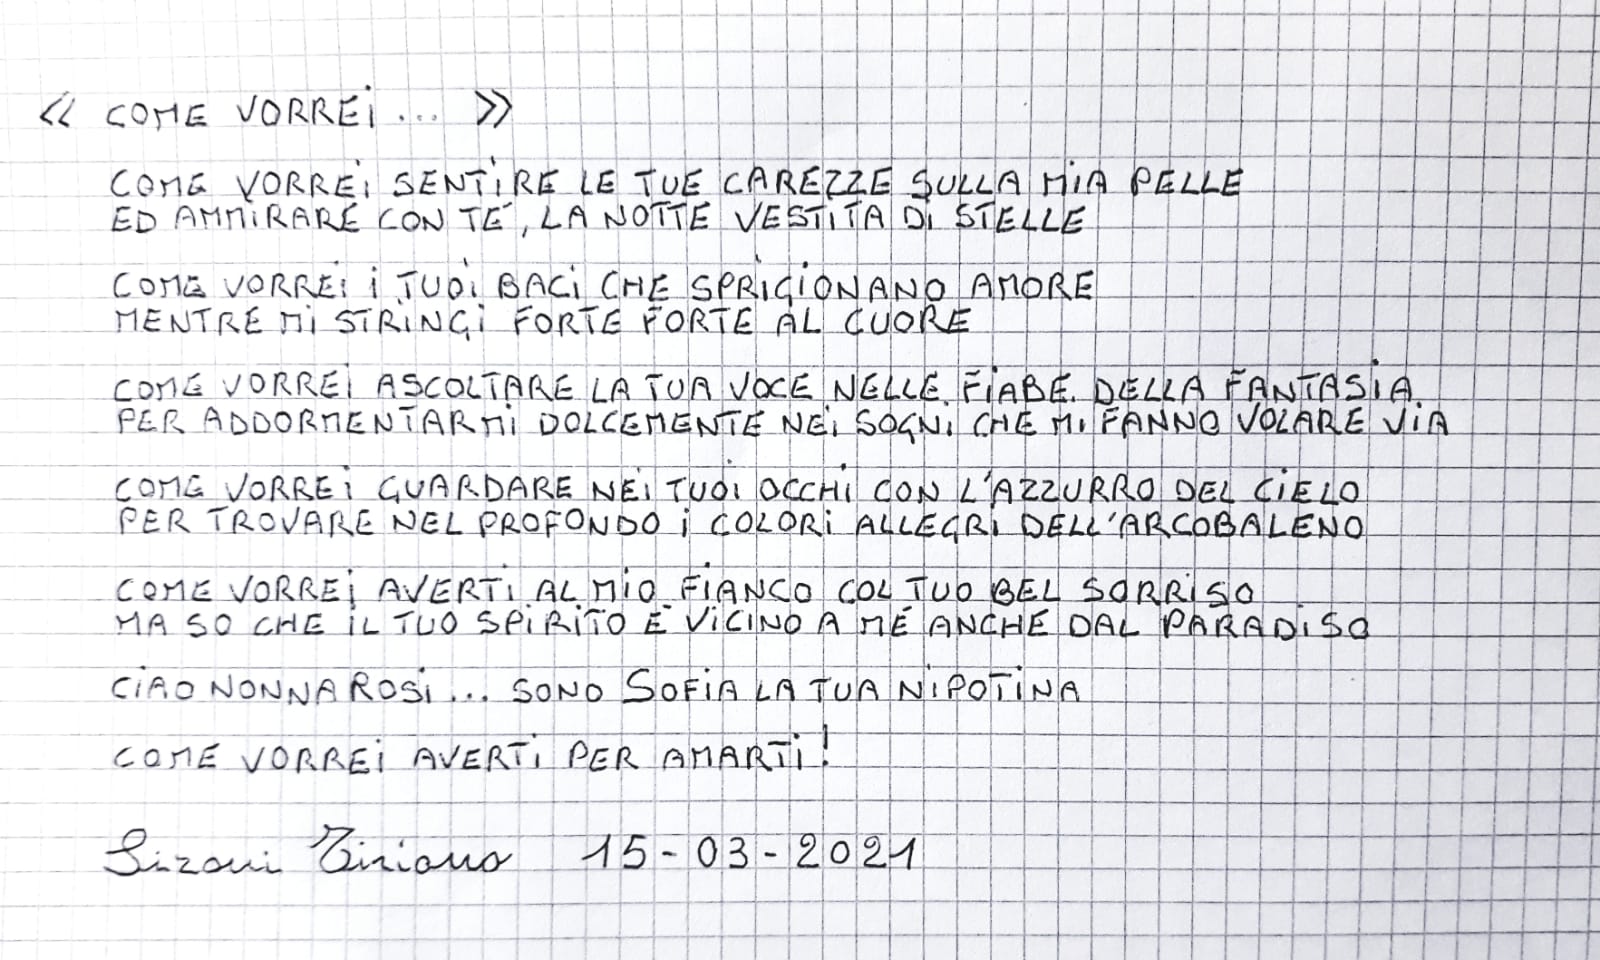 « COME VORREI... »
COME VORREI SENTIRE LE TUE CAREZZE SULLA MIA PELLE
ED AMMIRARE CON TE, LA NOTTE VESTITA DI STELLE
COME VORREI I TUOI BACI CHE SPRIGIONANO AMORE
MENTRE MI STRINGI FORTE FORTE AL CUORE
COME VORREI ASCOLTARE LA TUA VOCE NELLE FIABE DELLA FANTASIA
PER ADDORMENTARMI DOLCEMENTE NEI SOGNI CHE MI FANNO VOLARE VIA
COME VORREI GUARDARE NEI TUOI OCCHI CON L'AZZURRO DEL CIELO
PER TROVARE NEL PROFONDO I COLORI ALLEGRI DELL'ARCOBALENO
COME VORREI AVERTI AL MIO FIANCO COL TUO BEL SORRISO
MA SO CHE IL TUO SPIRITO È VICINO A ME ANCHE DAL PARADISO
CIAO NONNA ROSI... SONO SOFIA LA TUA NIPOTINA
COME VORREI AVERTI PER AMARTI!
Tiziano 15-03-2021